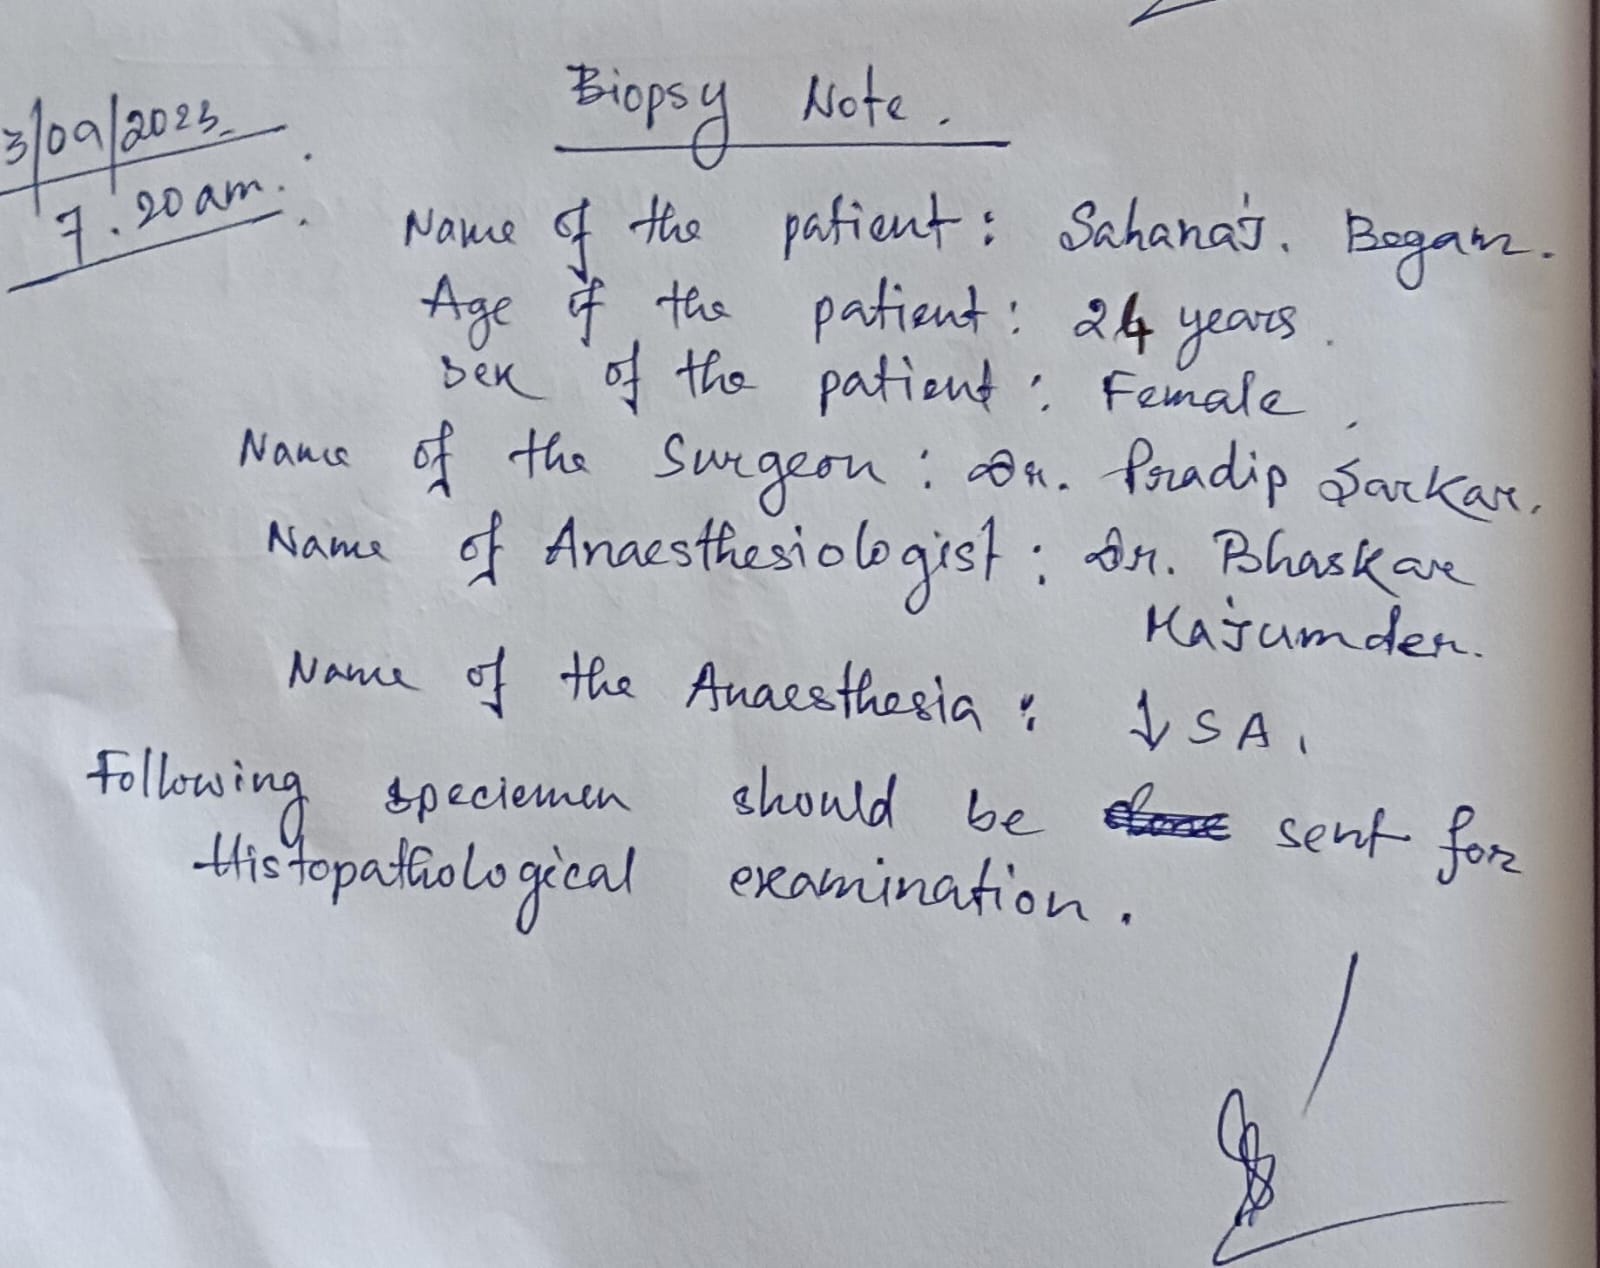 Biopsy Note.
3/09/2023
7.20 am.
Name of the patient: Sahanaj. Begam.
Age of the patient: 24 years.
Sex of the patient: Female.
Name of the Surgeon: Dr. Pradip Sarkar.
Name of Anaesthesiologist: Dr. Bhaskar
Majumder.
Name of the Anaesthesia: ↓ SA.
Following speciemen should be sent for
Histopathological examination.